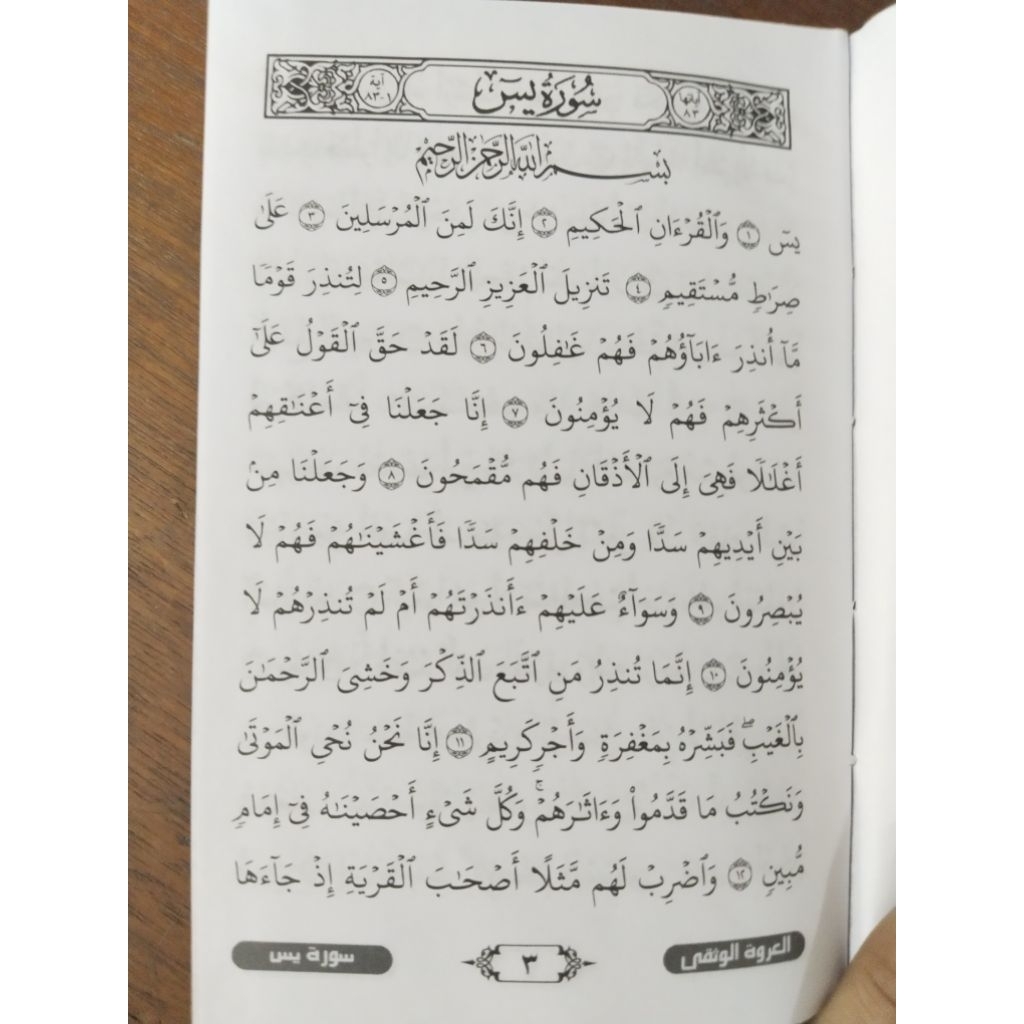 آياتها ٨٣
سُورَةُ يسٓ
آية ١-٨٣
بِسْمِ اللَّهِ الرَّحْمَٰنِ الرَّحِيمِ
يسٓ ۝١ وَٱلْقُرْءَانِ ٱلْحَكِيمِ ۝٢ إِنَّكَ لَمِنَ ٱلْمُرْسَلِينَ ۝٣ عَلَىٰ
صِرَٰطٍ مُّسْتَقِيمٍ ۝٤ تَنزِيلَ ٱلْعَزِيزِ ٱلرَّحِيمِ ۝٥ لِتُنذِرَ قَوْمًا
مَّآ أُنذِرَ ءَابَآؤُهُمْ فَهُمْ غَٰفِلُونَ ۝٦ لَقَدْ حَقَّ ٱلْقَوْلُ عَلَىٰٓ
أَكْثَرِهِمْ فَهُمْ لَا يُؤْمِنُونَ ۝٧ إِنَّا جَعَلْنَا فِىٓ أَعْنَٰقِهِمْ
أَغْلَٰلًا فَهِىَ إِلَى ٱلْأَذْقَانِ فَهُم مُّقْمَحُونَ ۝٨ وَجَعَلْنَا مِنۢ
بَيْنِ أَيْدِيهِمْ سَدًّا وَمِنْ خَلْفِهِمْ سَدًّا فَأَغْشَيْنَٰهُمْ فَهُمْ لَا
يُبْصِرُونَ ۝٩ وَسَوَآءٌ عَلَيْهِمْ ءَأَنذَرْتَهُمْ أَمْ لَمْ تُنذِرْهُمْ لَا
يُؤْمِنُونَ ۝١٠ إِنَّمَا تُنذِرُ مَنِ ٱتَّبَعَ ٱلذِّكْرَ وَخَشِىَ ٱلرَّحْمَٰنَ
بِٱلْغَيْبِ ۖ فَبَشِّرْهُ بِمَغْفِرَةٍ وَأَجْرٍ كَرِيمٍ ۝١١ إِنَّا نَحْنُ نُحْىِ ٱلْمَوْتَىٰ
وَنَكْتُبُ مَا قَدَّمُوا۟ وَءَاثَٰرَهُمْ ۚ وَكُلَّ شَىْءٍ أَحْصَيْنَٰهُ فِىٓ إِمَامٍ
مُّبِينٍ ۝١٢ وَٱضْرِبْ لَهُم مَّثَلًا أَصْحَٰبَ ٱلْقَرْيَةِ إِذْ جَآءَهَا
العروة الوثقى
٣
سورة يس